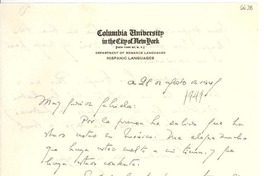 6638
Columbia University
in the City of New York
[NEW YORK 27, N. Y.]
DEPARTMENT OF ROMANCE LANGUAGES
HISPANIC LANGUAGES
a 28 de agosto de
1949
Muy querida Gabriela:
Por la prensa he sabido que ha
estado usted en México. Me alegra mucho
que haya usted vuelto a su tierra, y que
haya estado contenta.